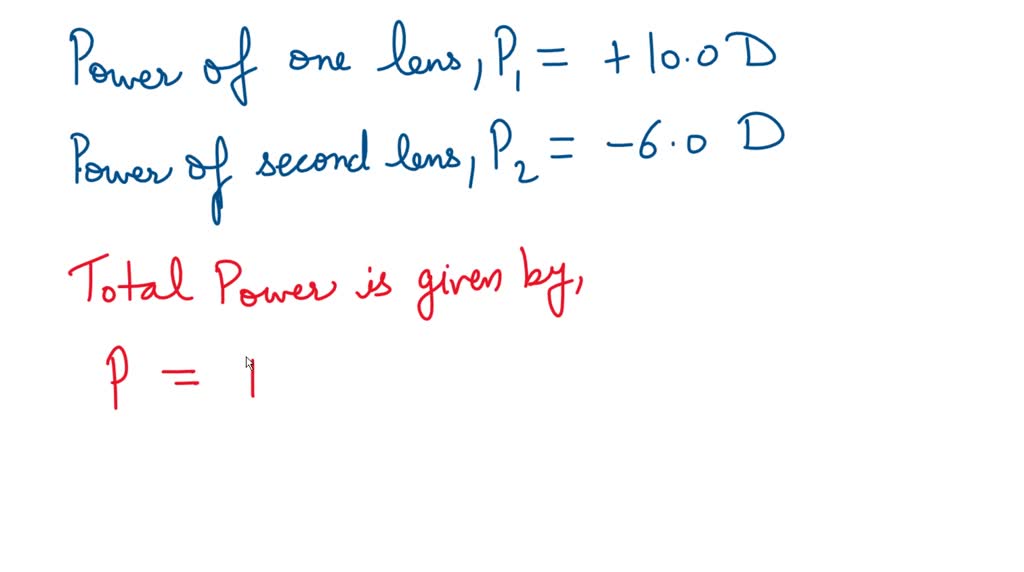 Power of one lens, P₁ = + 10.0 D
Power of second lens, P₂ = -6.0 D
Total Power is given by,
P =